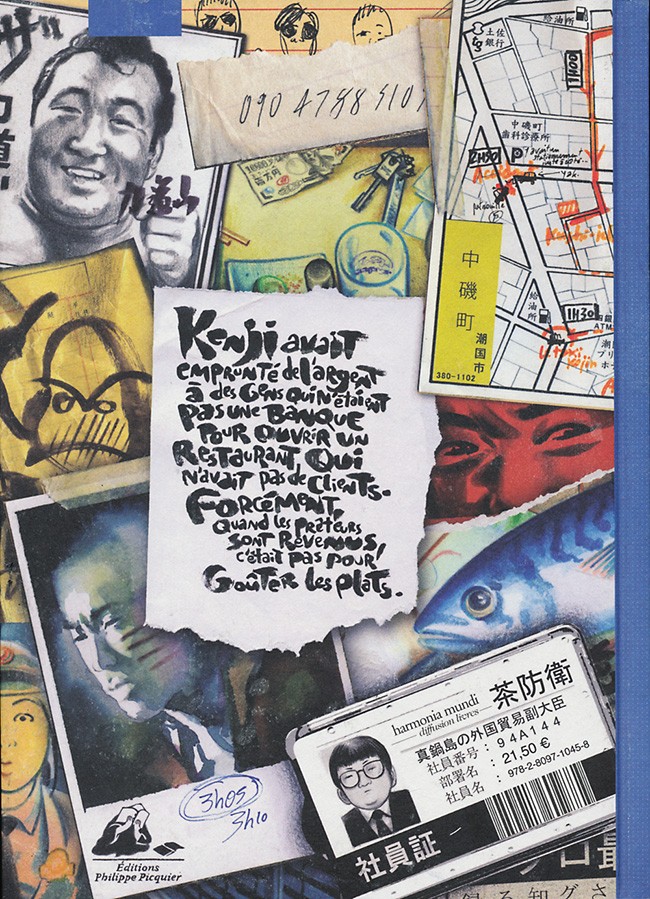 090 4788 5107
給油所
土佐
銀行
11H00
中磯町
歯科診療所
2H50
P
中磯町
潮国市
380-1102
給油所
11H30
ATM
Kenji avait
emprunté de l'argent
à des gens qui n'étaient
pas une banque
pour ouvrir un
restaurant qui
n'avait pas de clients.
Forcément,
quand les prêteurs
sont revenus,
c'était pas pour
goûter les plats.
harmonia mundi
diffusion livres
茶防衛
真鍋島の外国貿易副大臣
社員番号 : 94A144
部署名 : 21,50 €
社員名 : 978-2-8097-1045-8
社員証
3h05
3h10
Éditions
Philippe Picquier